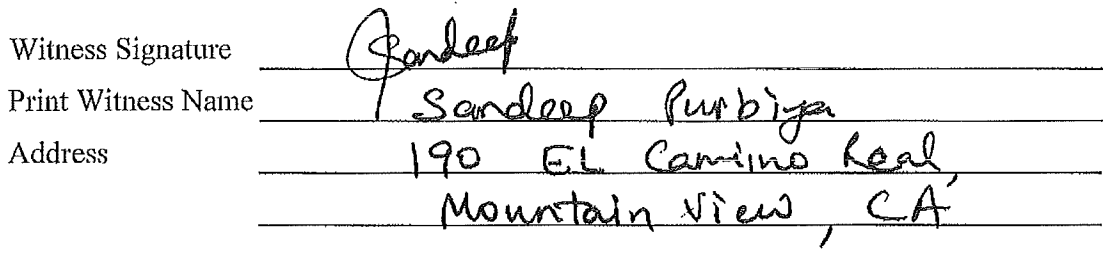 Witness Signature Sandeep
Print Witness Name Sandeep Purbiya
Address 190 EL Camino Real,
Mountain View, CA